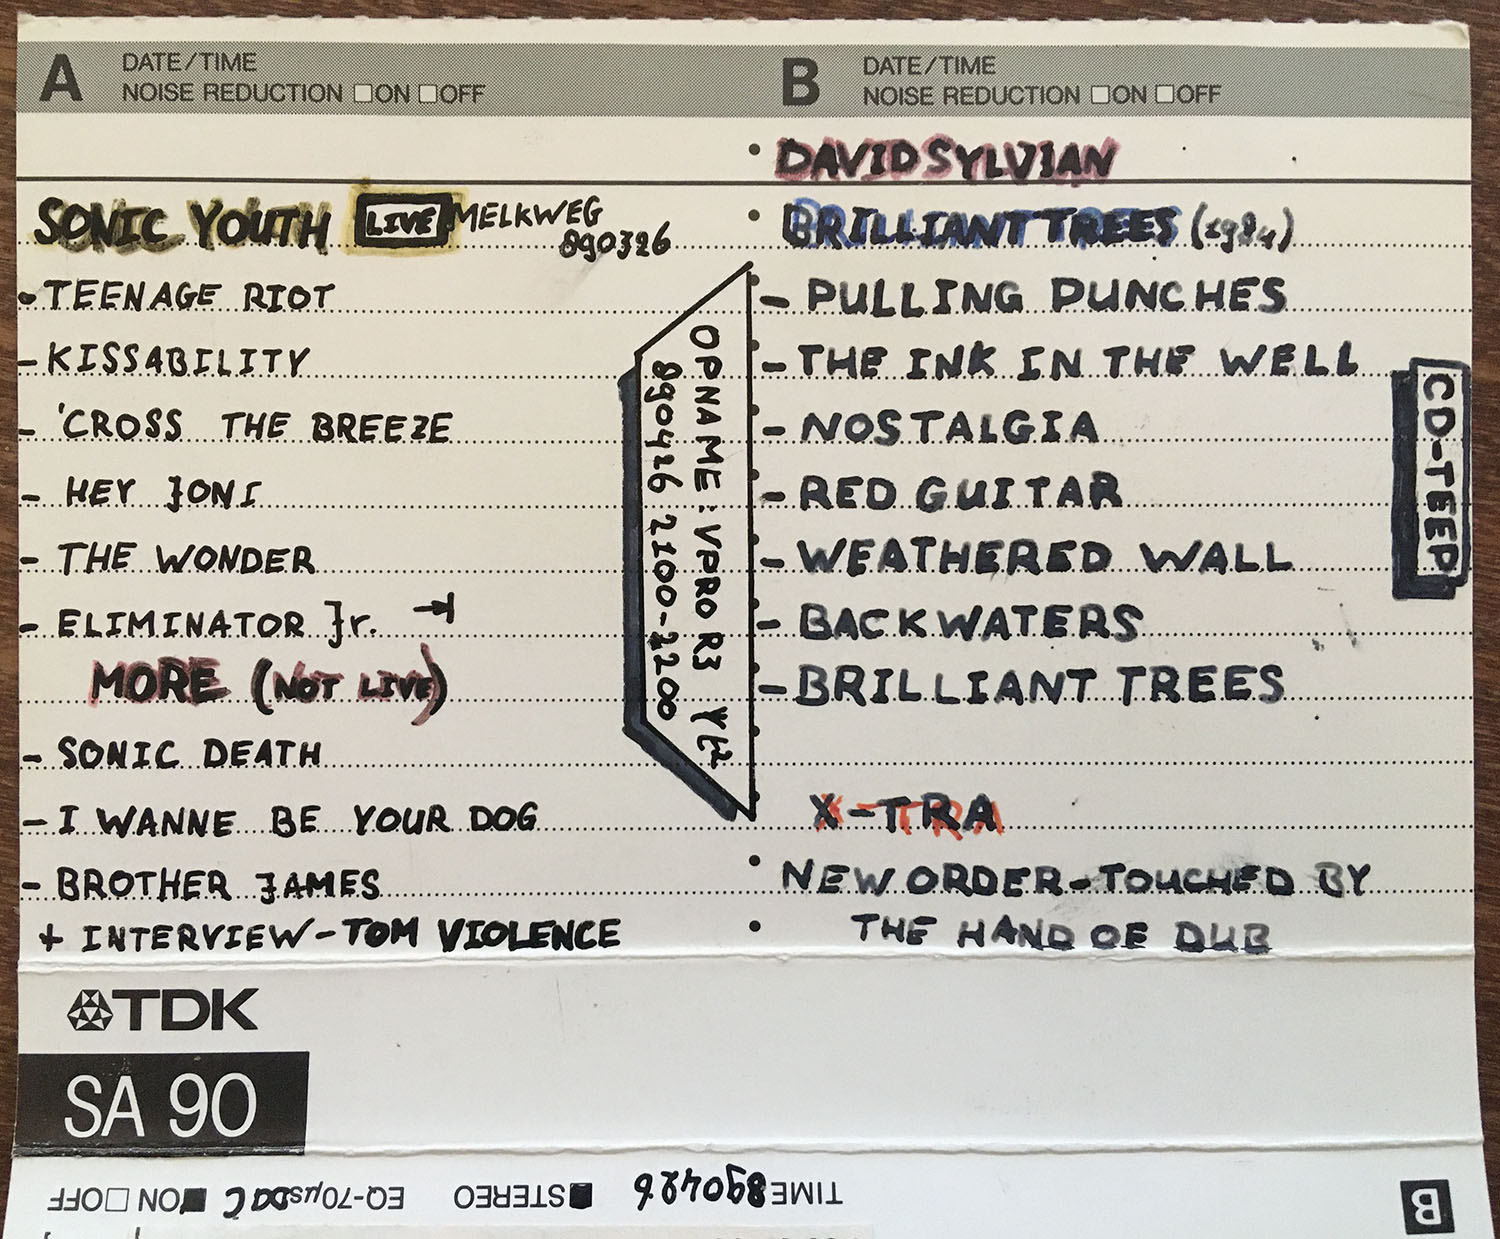 A DATE/TIME
NOISE REDUCTION □ON □OFF
SONIC YOUTH LIVE MELKWEG
890326
•TEENAGE RIOT
-KISSABILITY
- 'CROSS THE BREEZE
- HEY JONI
- THE WONDER
- ELIMINATOR Jr.
MORE (NOT LIVE)
- SONIC DEATH
- I WANNE BE YOUR DOG
- BROTHER JAMES
+ INTERVIEW-TOM VIOLENCE
OPNAME: VPRO R3
890426 2100-2200
B DATE/TIME
NOISE REDUCTION □ON □OFF
• DAVID SYLVIAN
• BRILLIANT TREES (1984)
- PULLING PUNCHES
- THE INK IN THE WELL
- NOSTALGIA
- RED GUITAR
- WEATHERED WALL
- BACKWATERS
- BRILLIANT TREES
CD-TEEP
X-TRA
• NEW ORDER-TOUCHED BY
• THE HAND OF DUB
TDK
SA 90
B
TIME 890426 ■STEREO EQ-70µs ■ON □OFF